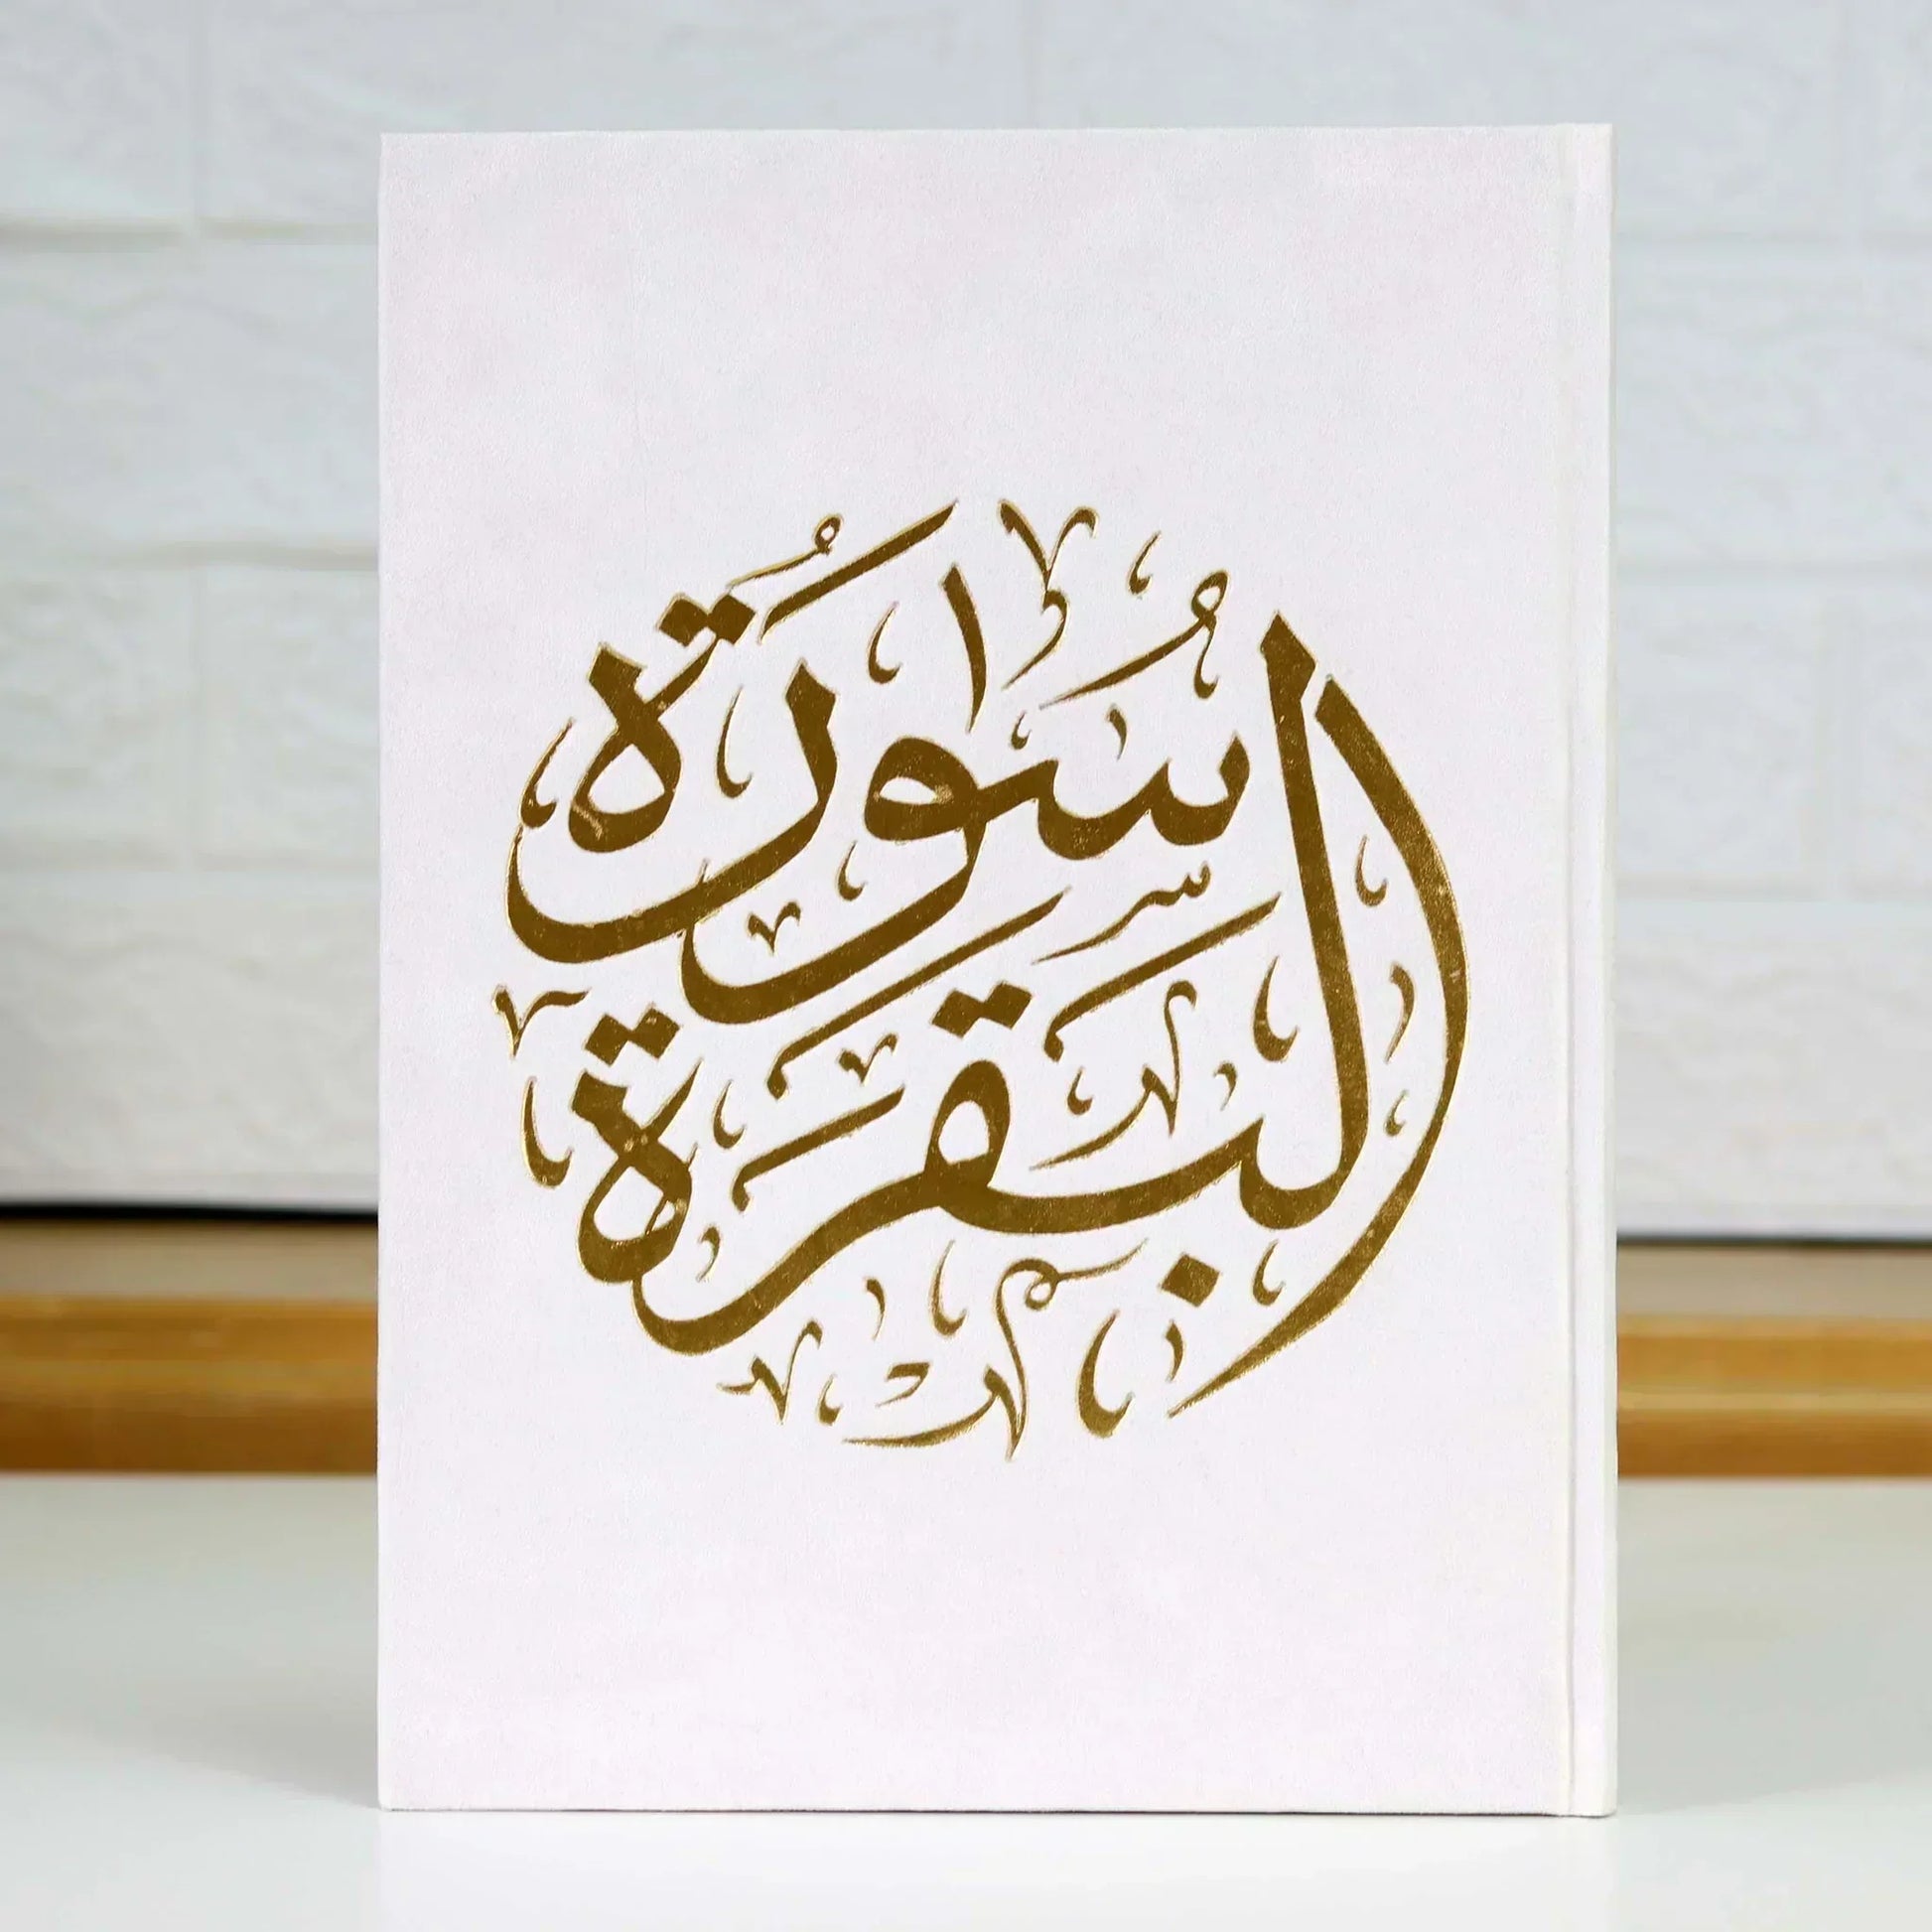 سُورَةُ
البَقَرَة